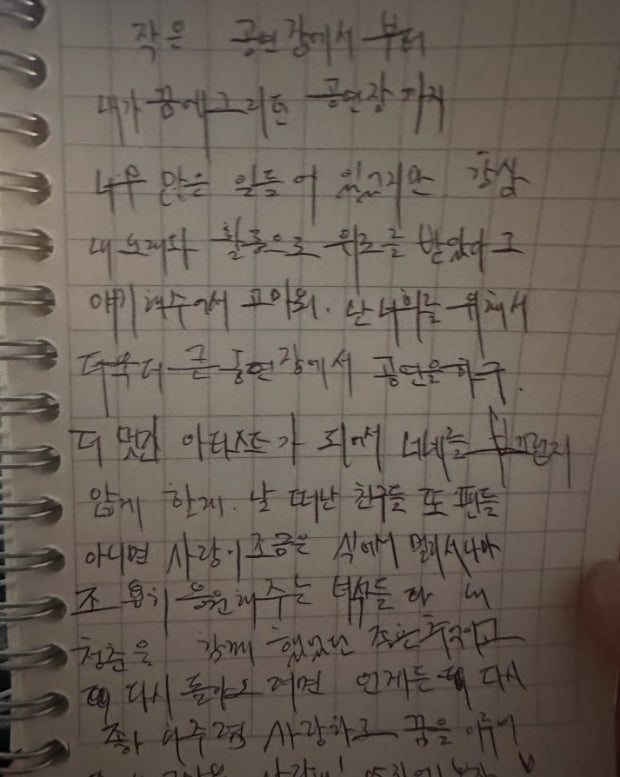 작은 공연장에서 부터
내가 꿈에그리던 공연장 까지
너무 많은 일들이 있었지만 항상
내 노래와 활동으로 위로를 받았다고
얘기해주어서 고마워. 난 너희를 위해서
더욱더 큰 공연장에서 공연을하구.
더 멋진 아티스트가 되어서 너네를
않게 할게. 날 떠난 친구들 또 팬들
아니면 사랑이 조금은 식어서 멀리서나마
조용히 응원해주는 녀석들 다 내
청춘을 함께 했었던 좋은추억이고
다시 돌아오려면 언제든 다시
좋아해주렴 사랑하고 꿈을 이루어